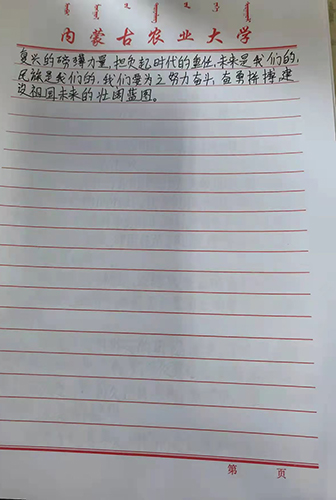 内蒙古农业大学
复兴的磅礴力量,担负起时代的重任,未来是我们的,
民族是我们的,我们要为之努力奋斗,奋勇拼搏,建
设祖国未来的壮阔蓝图。
第 页